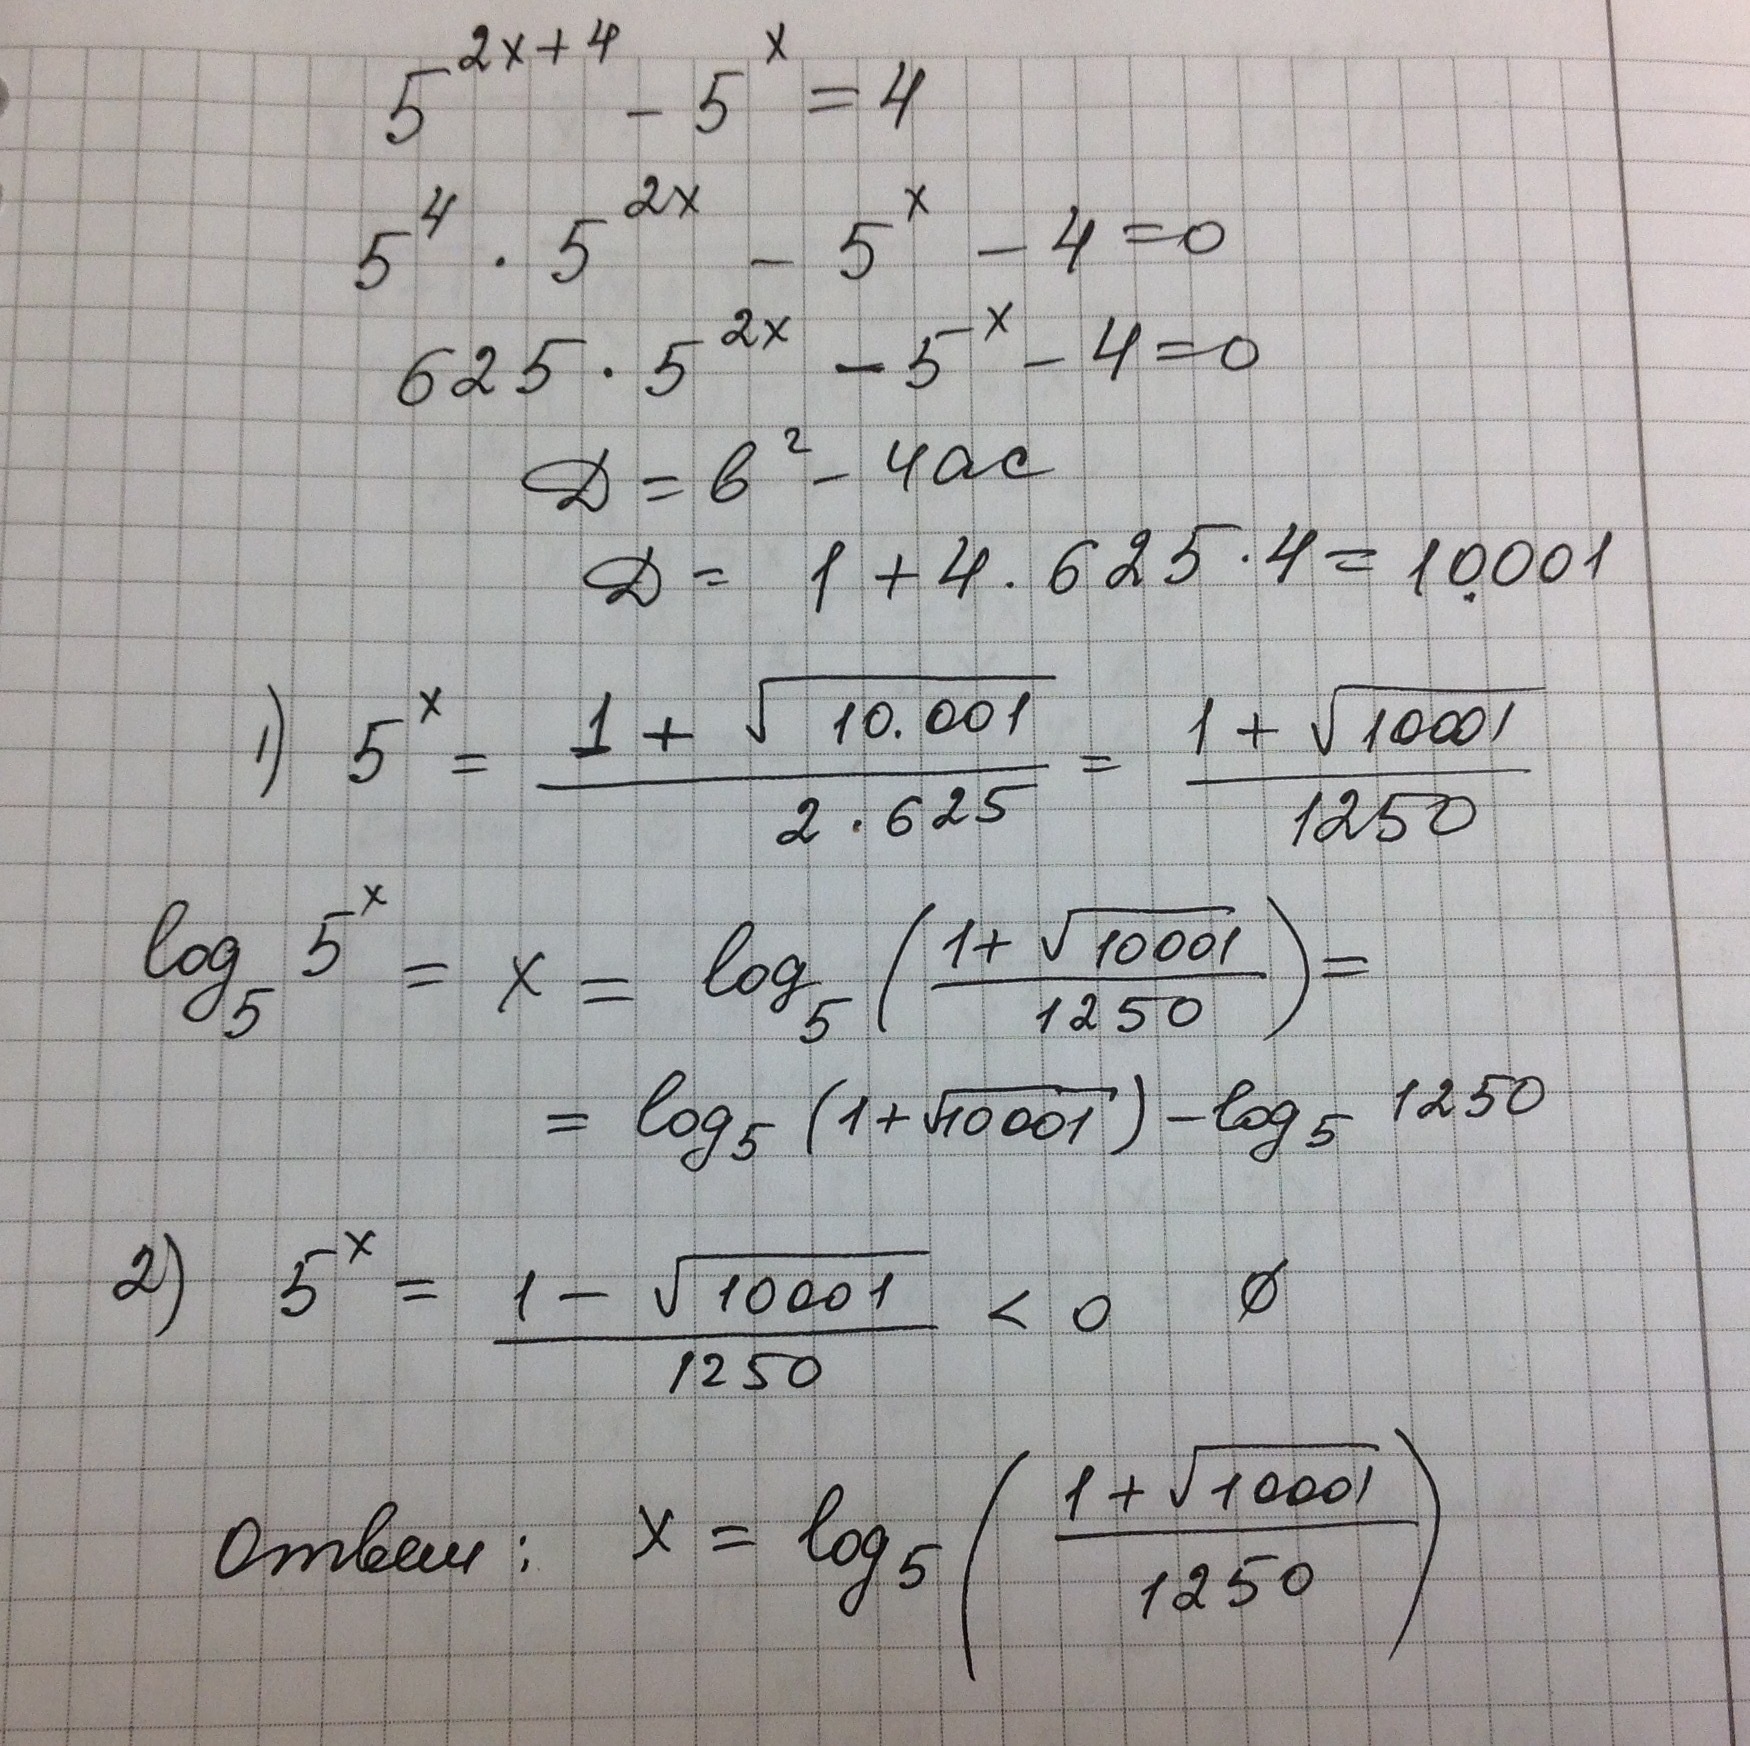 5^{2x+4} - 5^x = 4
5^4 · 5^{2x} - 5^x - 4 = 0
625 · 5^{2x} - 5^x - 4 = 0
Д = в² - 4ac
Д = 1 + 4 · 625 · 4 = 10.001
1) 5^x = (1 + √10.001) / (2 · 625) = (1 + √10001) / 1250
log₅ 5^x = x = log₅ ((1 + √10001) / 1250) =
= log₅ (1 + √10001) - log₅ 1250
2) 5^x = (1 - √10001) / 1250 < 0 ∅
Ответ: x = log₅ ((1 + √10001) / 1250)